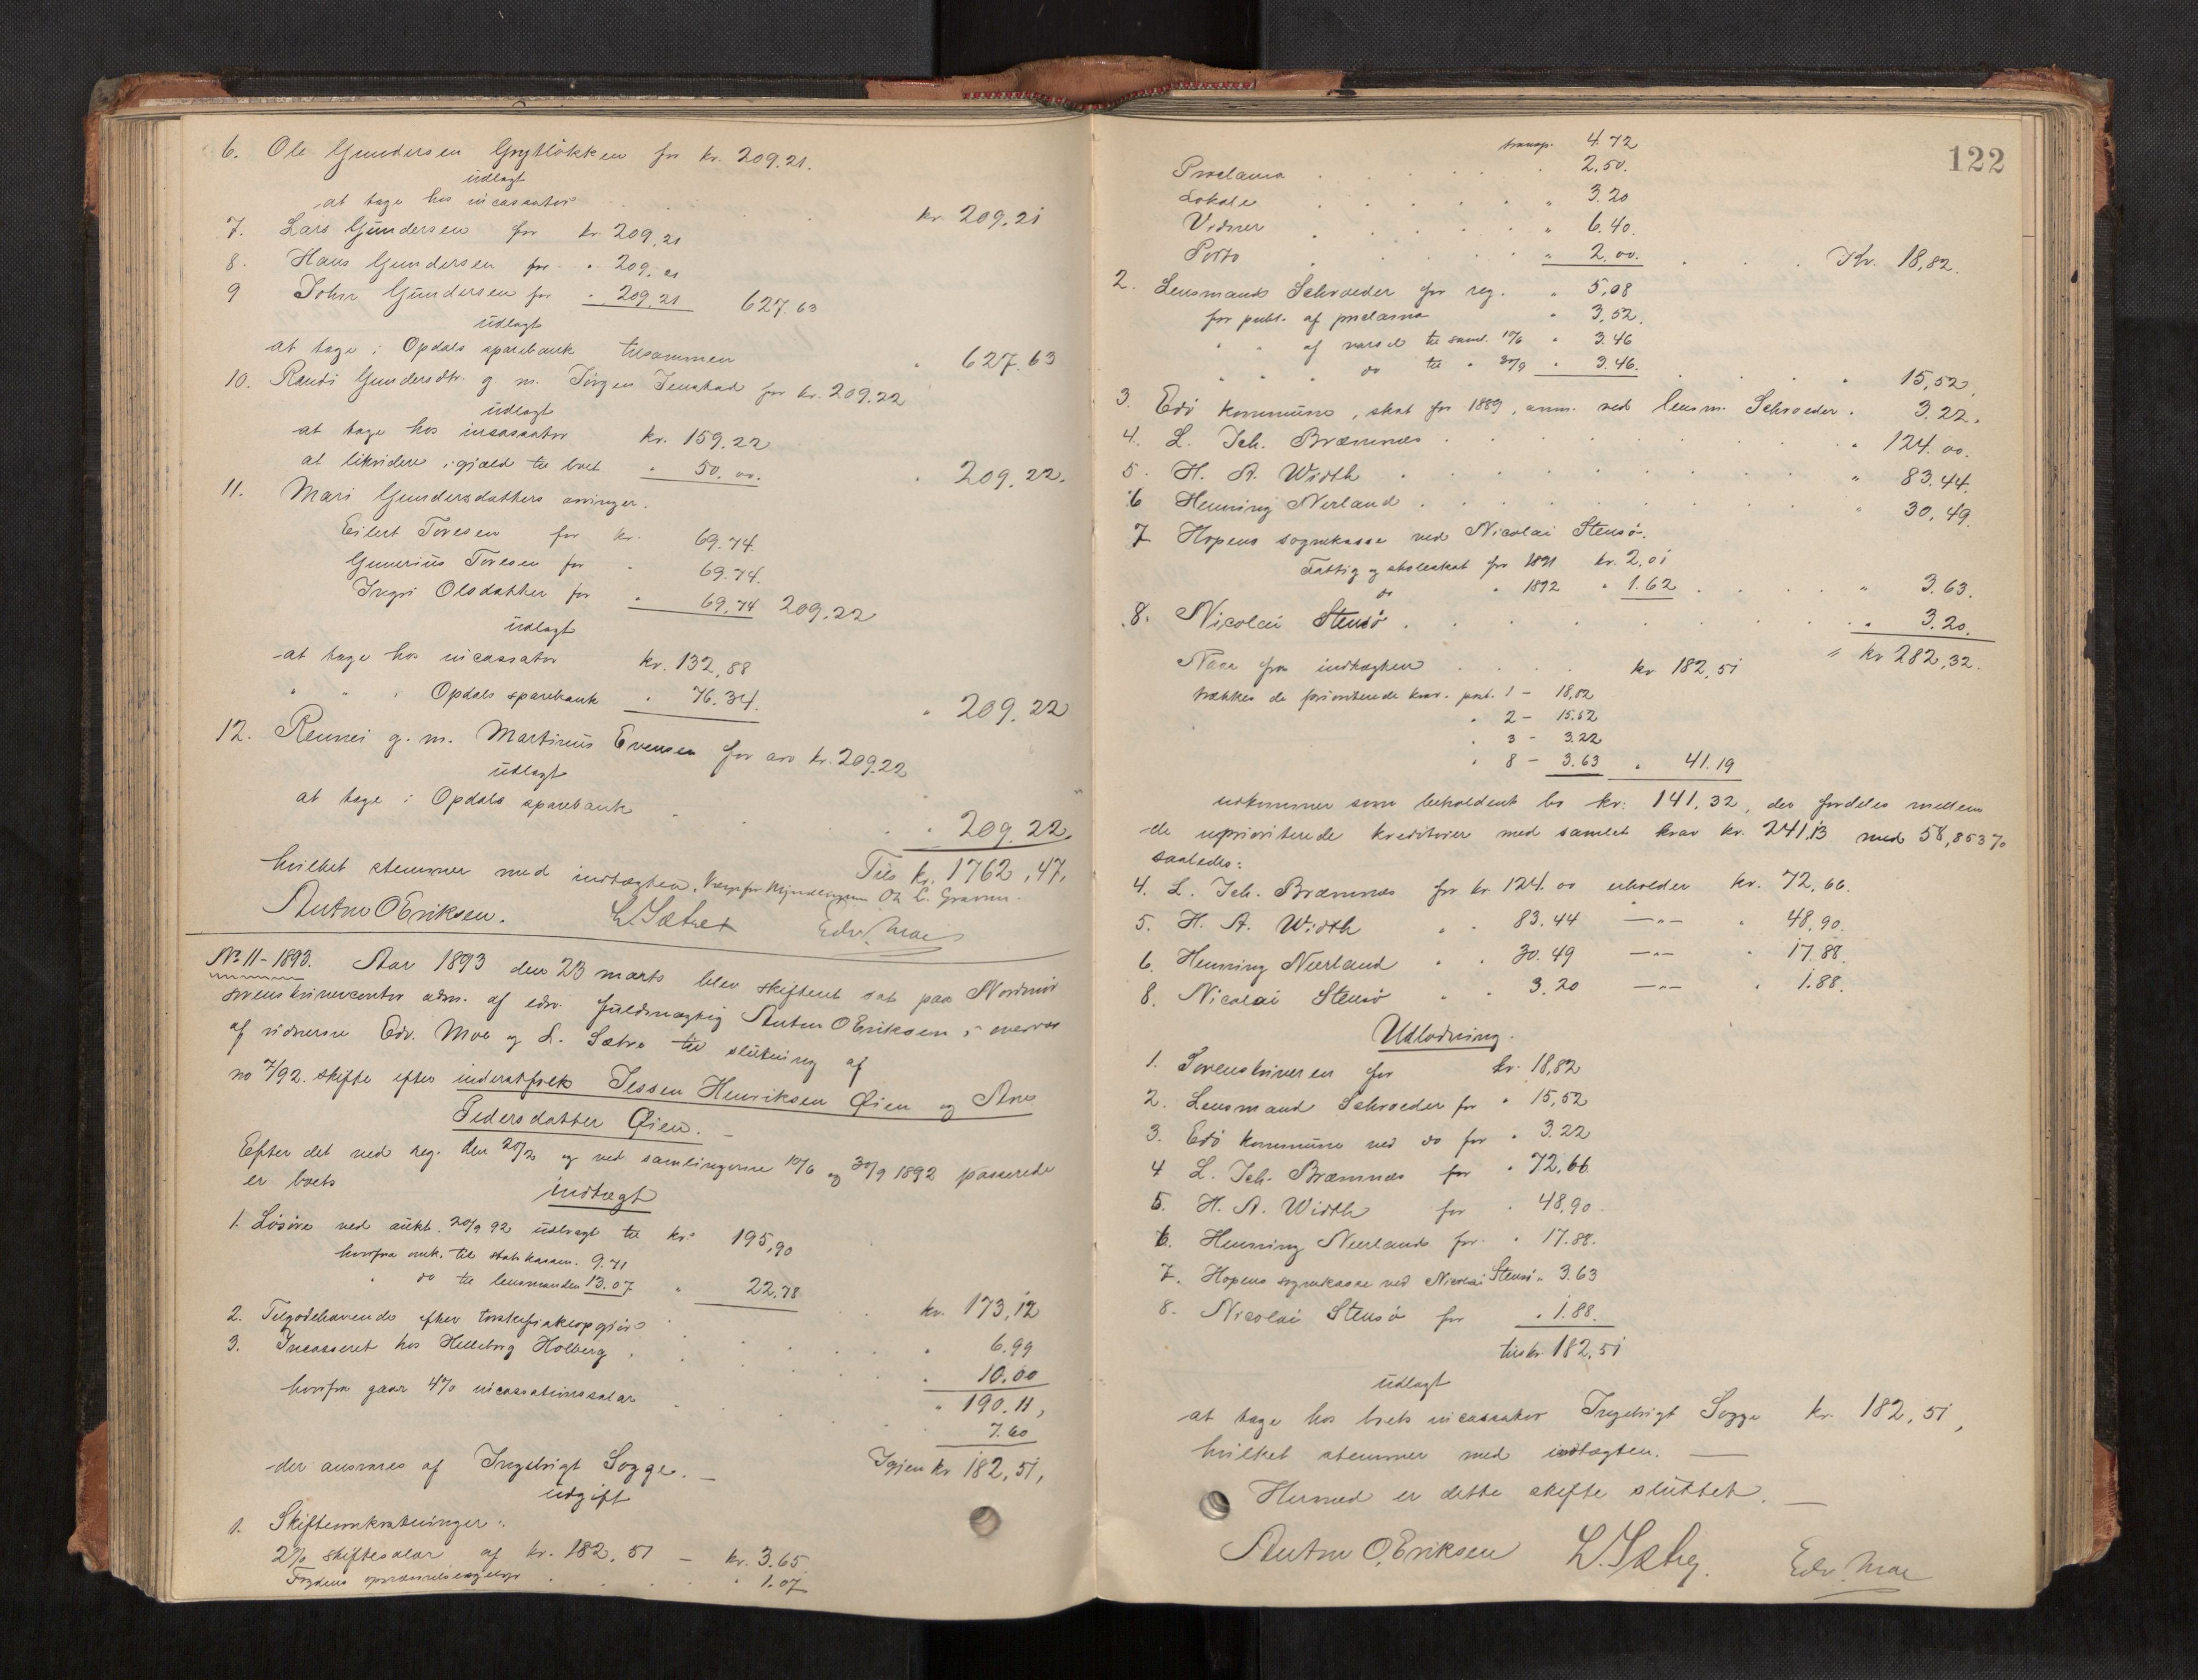 6. Ole Gundersen Grytløkken for kr. 209.21.
udlagt
at tage hos incassator . . . kr. 209,21
7. Lars Gundersen for kr. 209,21
8. Hans Gundersen for " 209,21
9 John Gundersen for " 209,21 627.63
udlagt
at tage i Opdals sparebank tilsammen " 627.63
10. Randi Gundersdtr. g. m. Jørgen Jenstad for kr. 209.22
udlagt
at tage hos incassator kr. 159.22
at likvidere i gjæld til boet " 50.00. " 209.22.
11. Mari Gundersdatters arvinger.
Eilert Toresen for kr. 69.74.
Gunerius Toresen for " 69.74.
Ingri Olsdatter for " 69,74 209,22
udlagt
at tage hos incassator kr. 132,88
" " i Opdals sparebank " 76.34. " 209.22
12. Rennei g. m. Martinus Evensen for arv kr. 209.22
udlagt
at tage i Opdals sparebank . . . " 209.22.
Tils kr. 1762,47.
hvilket stemmer med indtægten. Værge for Ole L. Gravem.
Anton O Eriksen. L. Sætre Edv. Moe
No 11-1893. Aar 1893 den 23 marts blev skifteret sat paa Nordmør
sorenskrivercontor adm. af edsv. fuldmægtig Anton O Eriksen, i overvær
af vidnerne Edv. Moe og L. Sætre til slutning af
no 7/92. skifte efter inderstfolk Jessen Henriksen Øien og Ane
Pedersdatter Øien. –
Efter det ved reg. den 20/2 og ved samlingerne 10/6 og 30/9 1892 passerede
er boets
indtægt
1. Løsøre ved aukt. 20/2 92 udbragt til kr. 195,90
hvorfra omk. til statskassen. 9.71
" do til lensmanden 13.07 " 22,78
. . kr. 173,12
2. Tilgodehavende efter torskefiskeopgjør . . . " 6.99
3. Incasseret hos Helleborg Holberg . . . " 10.00
" 190.11,
hvorfra gaar 4% incassationssalar . . . " 7.60
der ansvares af Ingebrigt Sogge. – Igjen kr 182,51,
udgift
1. Skifteomkostninger:
2% skiftesalar af kr. 182,51 – kr. 3.65
Fogdens . . . " 1.07
122
transp. 4.72
Proclama . . . " 2.50.
Lokale . . . " 3.20
Vidner . . . " 6.40.
Porto . . . " 2.00. . . . Kr. 18,82.
2. Lensmand Schrøeder for reg. " 5,08
for publ. af proclama " 3,52.
" " af varsel til saml. 10/6 " 3.46
" " " do til " 30/9 " 3.46. . . . " 15,52
3. Edø kommune, skat for 1889, anm. ved lensm. Schrøeder. " 3.22.
4. L. Joh. Bræmnæs . . . " 124.00.
5. H. A. Width . . . " 83.44.
6 Henning Nerland . . . " 30,49.
7 Hopens sognekasse ved Nicolai Stensø.
Fattig og skoleskat for 1891 kr. 2,01
do " 1892 " 1.62 . . . " 3.63.
8. Nicolai Stensø . . . " 3.20.
" kr 282,32.
Naar fra indtægten . . . kr 182,51
trækkes de prioriterede krav. post. 1 – 18,82
" 2 – 15.52
" 3 – 3.22
" 8 – 3.63 " 41.19
udkommer som beholdent bo kr. 141,32, der fordeles mellem
de uprioriterede kreditorer med samlet krav kr. 241.13 med 58,853%
saaledes:
4. L. Joh. Bræmnæs for kr 124.00 erholder kr. 72,66.
5. H. A. Width " " 83.44 –"– " 48,90.
6. Henning Nerland " " 30.49 –"– " 17.88.
8. Nicolai Stensø " " 3.20 –"– " 1.88.
Udlodning.
1. Sorenskriveren for kr. 18,82
2. Lensmand Schrøeder for " 15,52
3. Edø kommune ved do for " 3.22
4 L. Joh. Bræmnæs for " 72,66
5. H. A. Width for " 48,90.
6. Henning Nerland for. " 17.88.
7. Hopens sognekasse ved Nicolai Stensø " 3.63
8. Nicolai Stensø for " 1.88.
tils kr. 182,51
udlagt
at tage hos boets incassator Ingebrigt Sogge kr. 182,51,
hvilket stemmer med indtægten. –
Hermed er dette skifte sluttet. –
Anton O. Eriksen L. Sætre. Edv. Moe